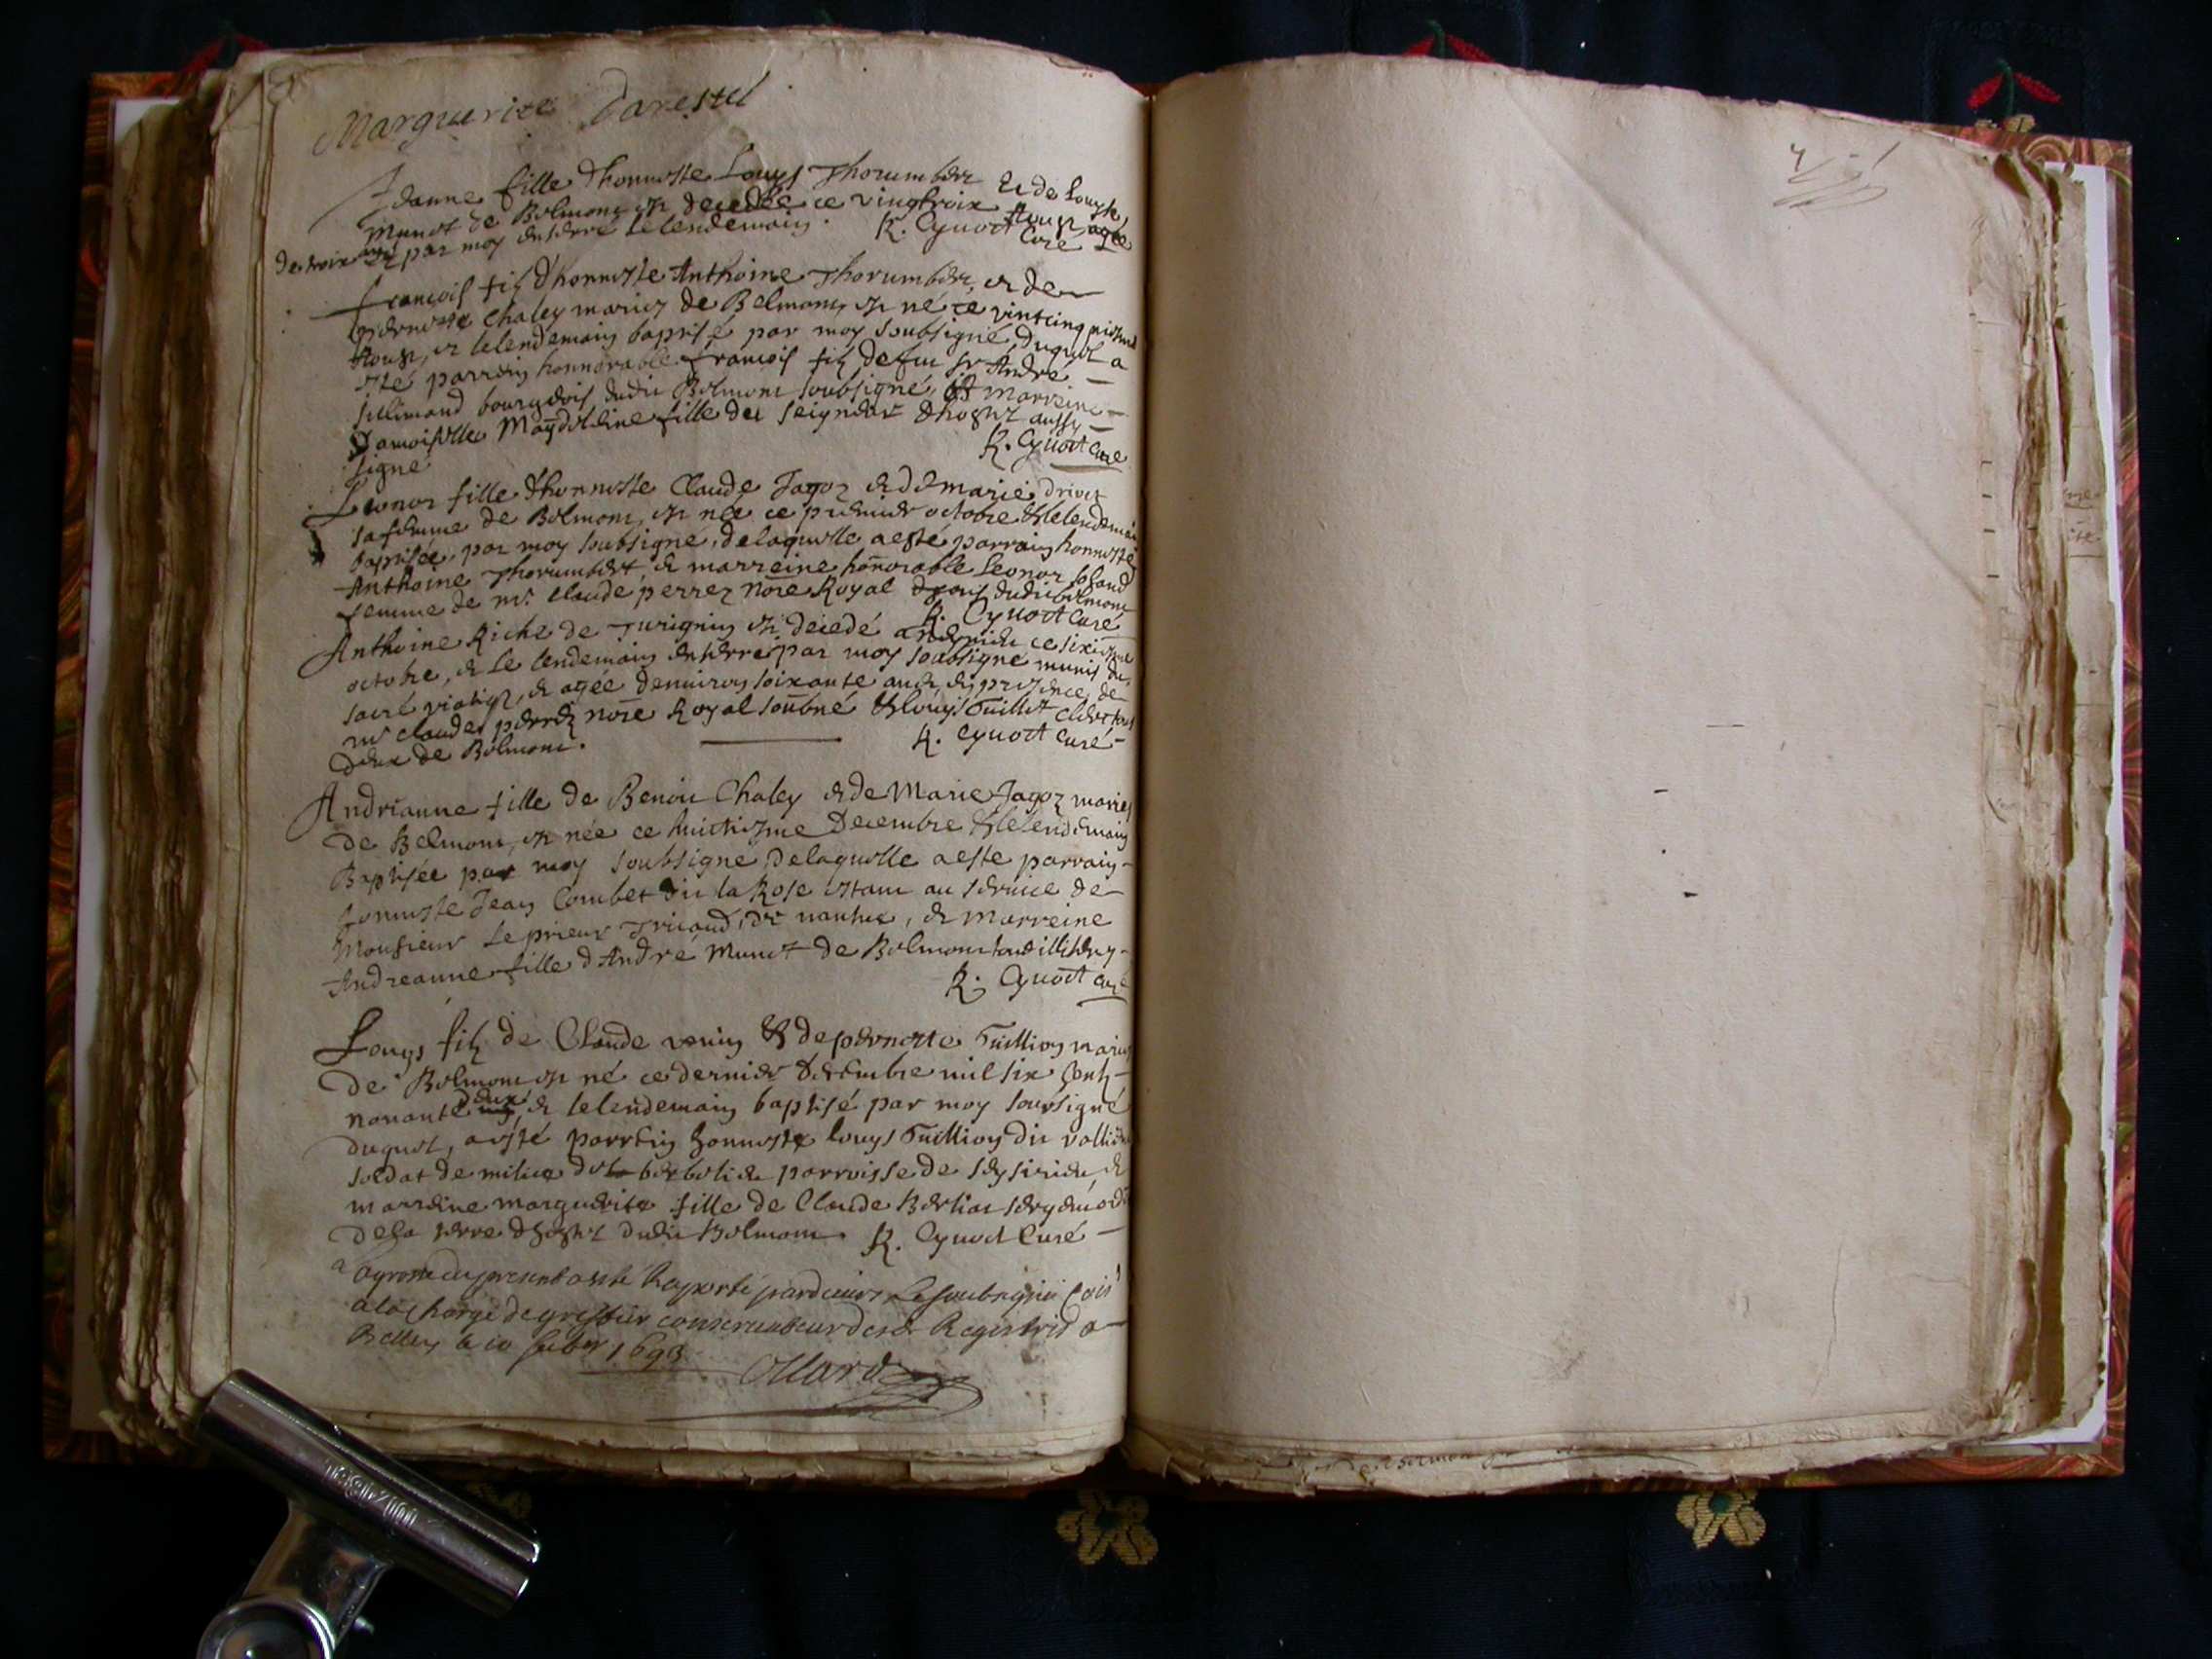 Marguerite Darestel
Jeanne fille d'honneste Louys Thorumbert et de Louyse
Munet de Belmont est decedée ce vingtroix Aoust agée
de troix ans et par moy enterré le lendemain. R. Cynoct Curé
francois filz d'honneste Anthoine Thorumbert, et de
pernette Chaley mariez de Belmont est né ce vintcinquiesme
Aoust, et le lendemain baptisé par moy soubsigné, duquel a
esté parrein honnorable francois filz de feu sr André
Jullimand bourgeois dudit Belmont soubsigné, et marreine
Damoiselle Magdeleine fille du seigneur d'hostel aussy
signé R. Cynoct Curé
Leonor fille d'honneste Claude Jagoz et de marie Drivet
sa femme de Belmont, est née ce premier octobre et le lendemain
baptisée, par moy soubsigné, delaquelle a esté parrain honneste
Anthoine Thorumbert, et marreine honnorable Leonor
femme de mr. Claude perrez nore Royal dudit belmont
R. Cynoct Curé
Anthoine Riche de est decedé ce sixiesme
octobre, et le lendemain enterré par moy soubsigné munis du
sacré viatiq, et agée denuiron soixante ans, en presence de
mr claude perrez nore Royal soubné et Louys Tuillet clerc tous
deux de Belmont. R. Cynoct Curé
Andrianne fille de Benoit Chaley et de Marie Jagoz mariez
de Belmont, est née ce huictiesme Decembre et le lendemain
Baptisée par moy soubsigné, delaquelle a esté parrain
honneste Jean Combet dit la Rose estant au seruice de
Monsieur le prieur Tricaud de nantue, et marreine
Andreanne fille d'André Munet de Belmont tous illiterez
R. Cynoct Curé
Louys filz de Claude venin et de pernette Tuillion mariez
de Belmont est né ce dernier decembre mil six centz
nonante deux, et le lendemain baptisé par moy soubsigné
duquel, a esté parrein honneste Louys Tuillion dit
soldat de milice de parroisse de seyssirieu, et
marreine marguerite fille de Claude Berliat
de la terre d'hostel dudit Belmont. R. Cynoct Curé
a esté Raporté pardeuers Le soubsigné
a la charge de greffier conseruateur desd Registres a
Belley le 10 1693
Ollard